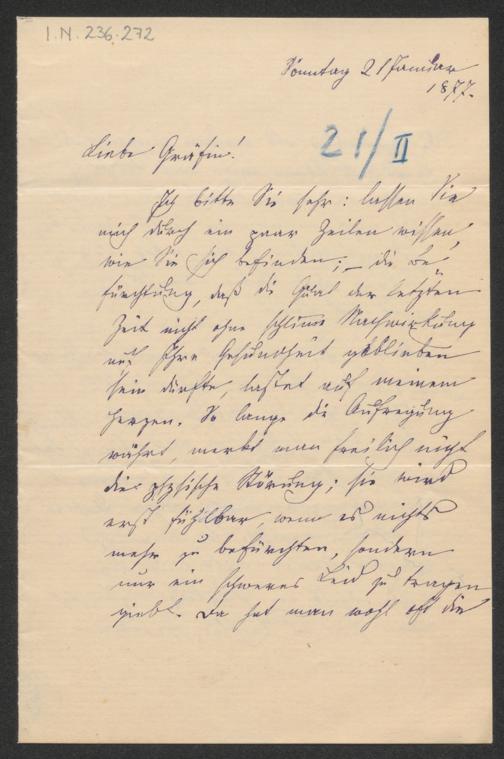 I.N. 236.272
Sonntag 21 Januar
1877.
21/II
Liebe Gräfin!
Ich bitte Sie sehr: lassen Sie
mich durch ein paar Zeilen wissen,
wie Sie sich befinden; – die Be-
fürchtung, daß die Qual der letzten
Zeit nicht ohne schlimme Nachwirkung
auf Ihre Gesundheit geblieben
sein dürfte, lastet auf meinem
Herzen. So lange die Aufregung
währt, merkt man freilich nicht
die physische Störung; sie wird
erst fühlbar, wenn es nichts
mehr zu befürchten, sondern
nur ein schweres Leid zu tragen
giebt. Da hat man wohl oft die